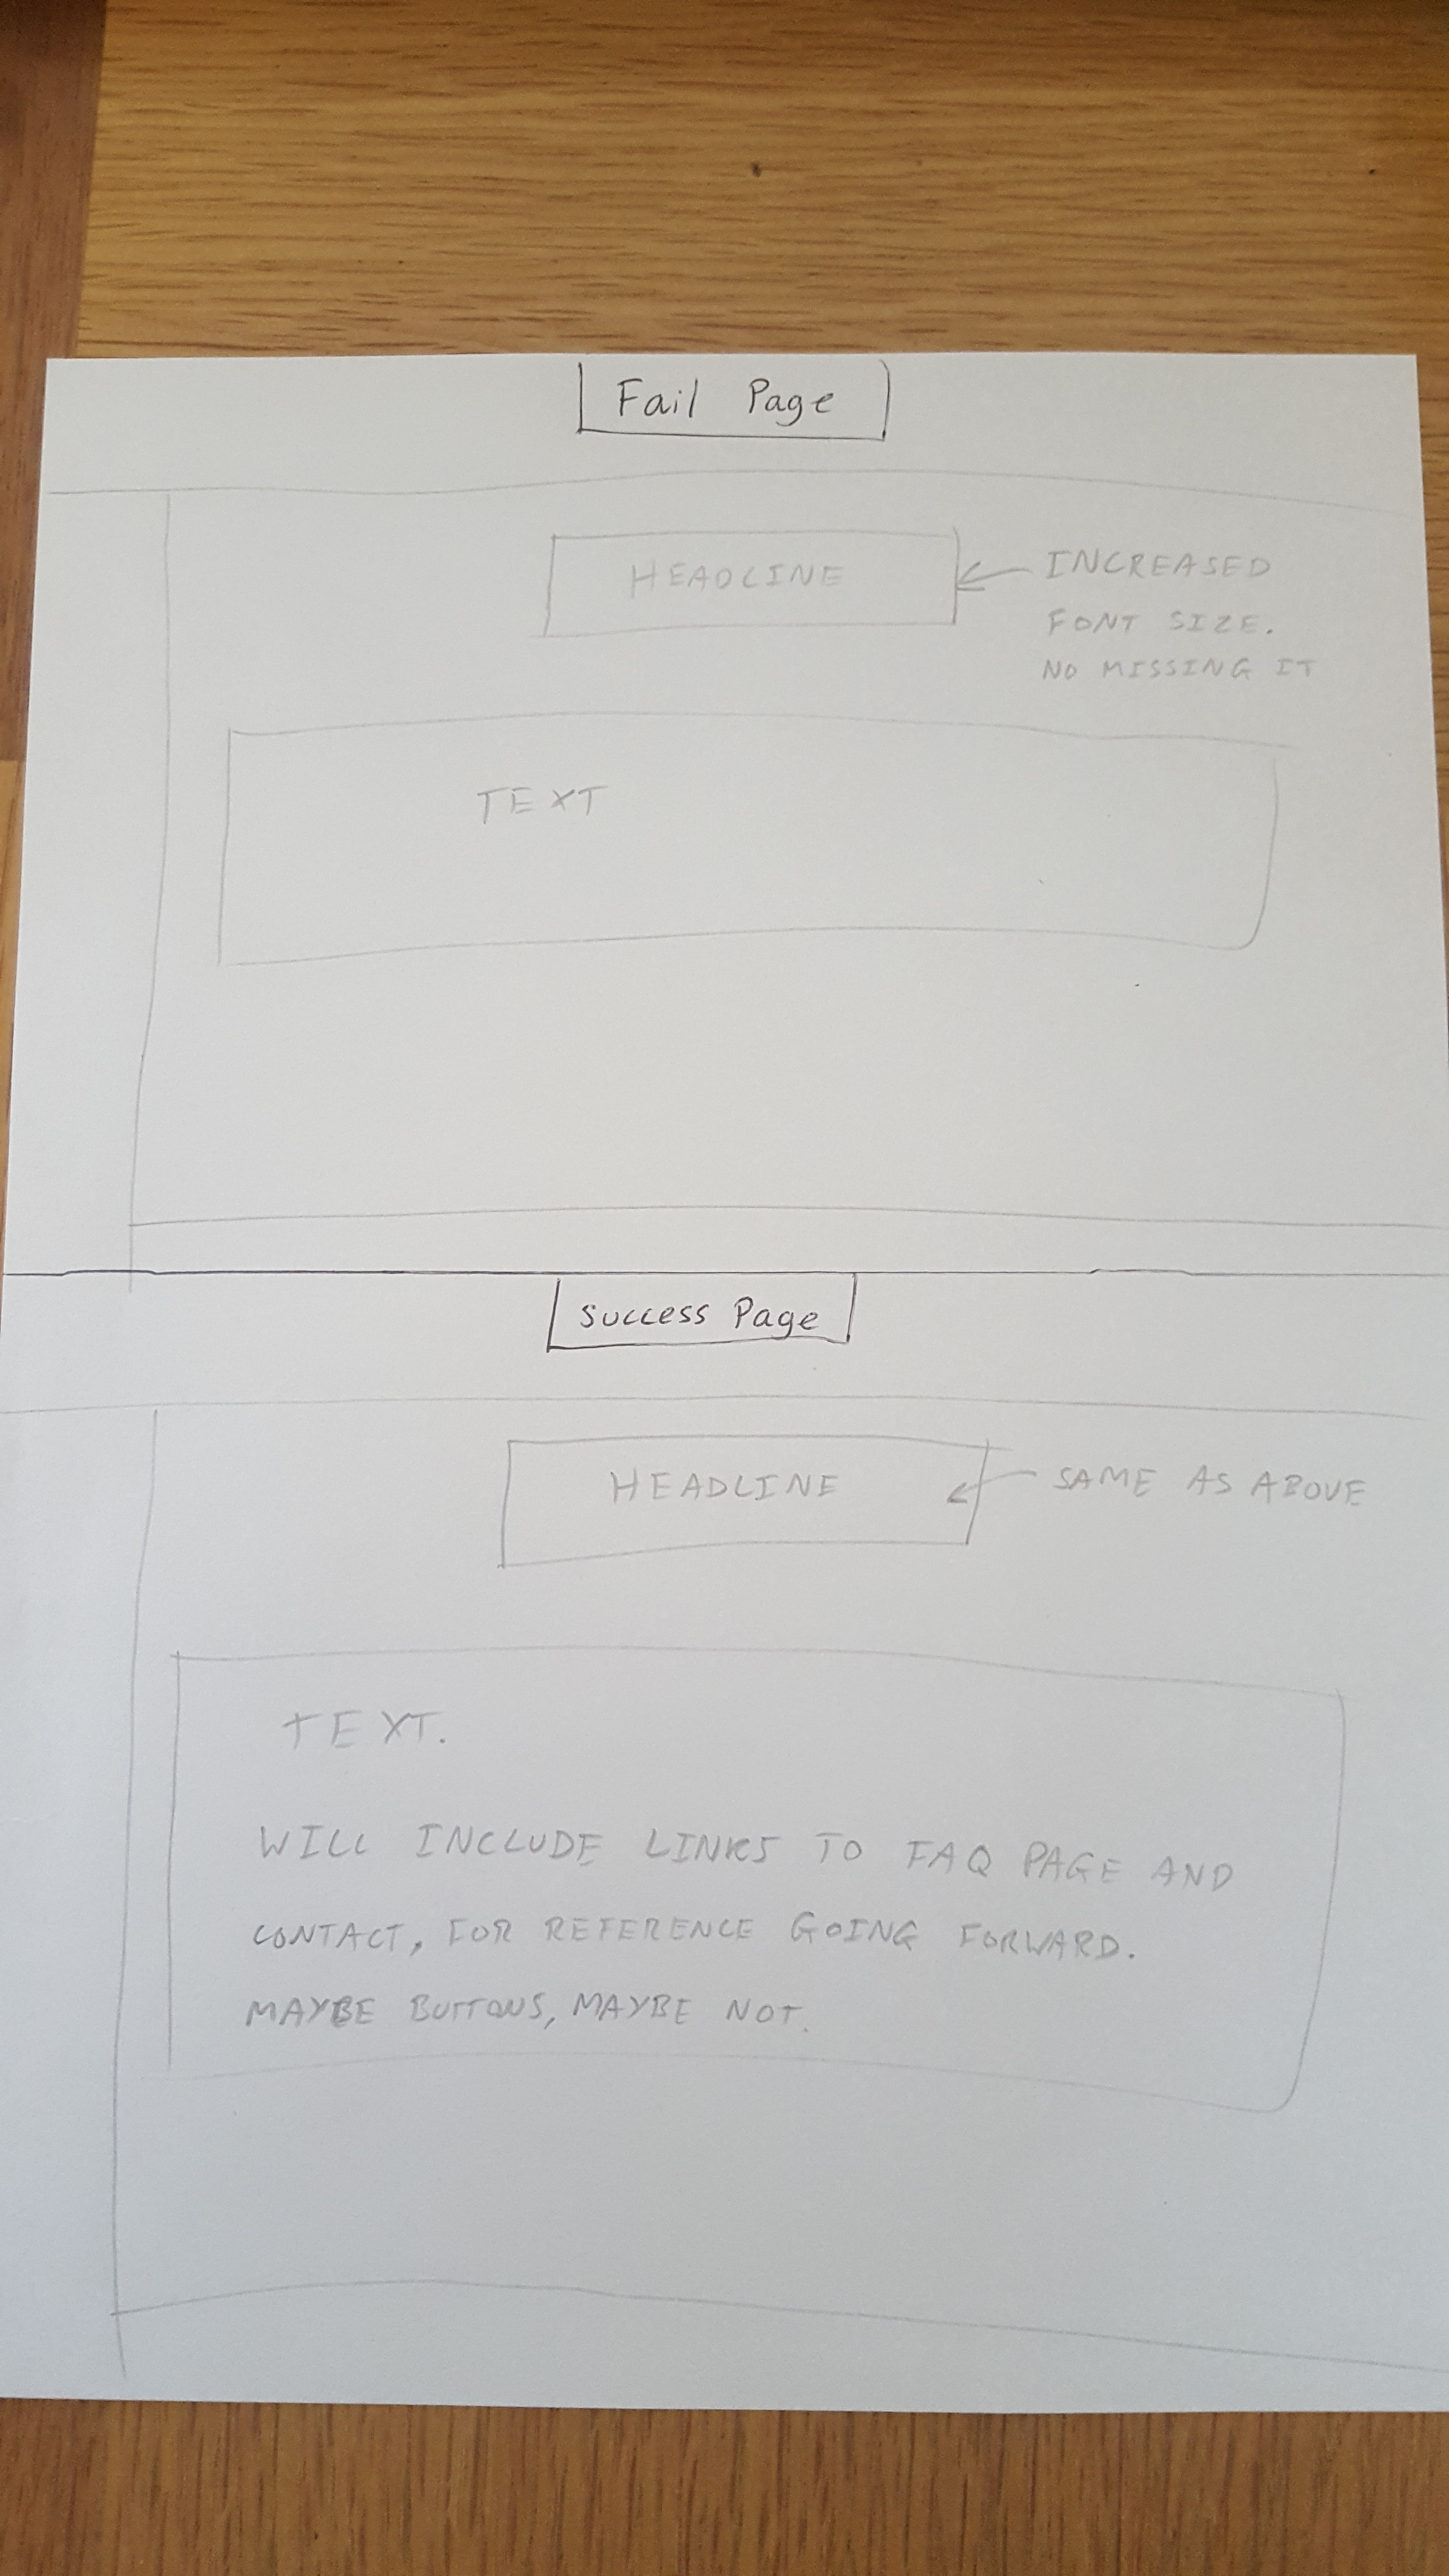 Fail Page
HEADLINE
INCREASED
FONT SIZE.
NO MISSING IT
TEXT
Success Page
HEADLINE
SAME AS ABOVE
TEXT.
WILL INCLUDE LINKS TO FAQ PAGE AND
CONTACT, FOR REFERENCE GOING FORWARD.
MAYBE BUTTONS, MAYBE NOT.